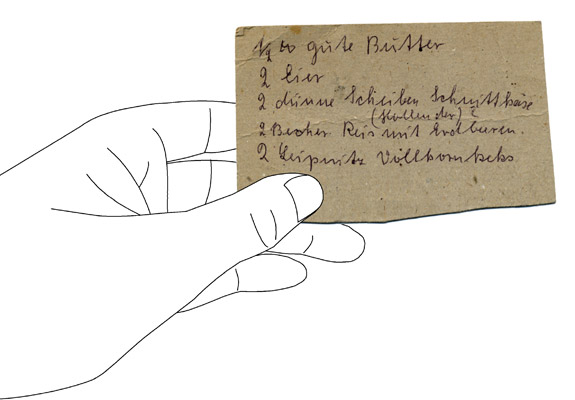 1/2 ℔ gute Butter
2 Eier
2 dünne Scheiben Schnittkäse
(Holländer)
2 Becher Reis mit Erdbeeren.
2 Leipnitz Vollkornkeks